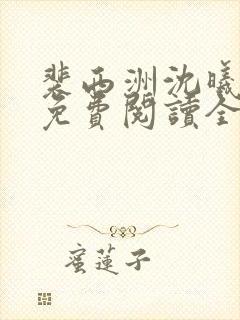 裴西洲沈曦
免費閱讀全
蜜蓮子